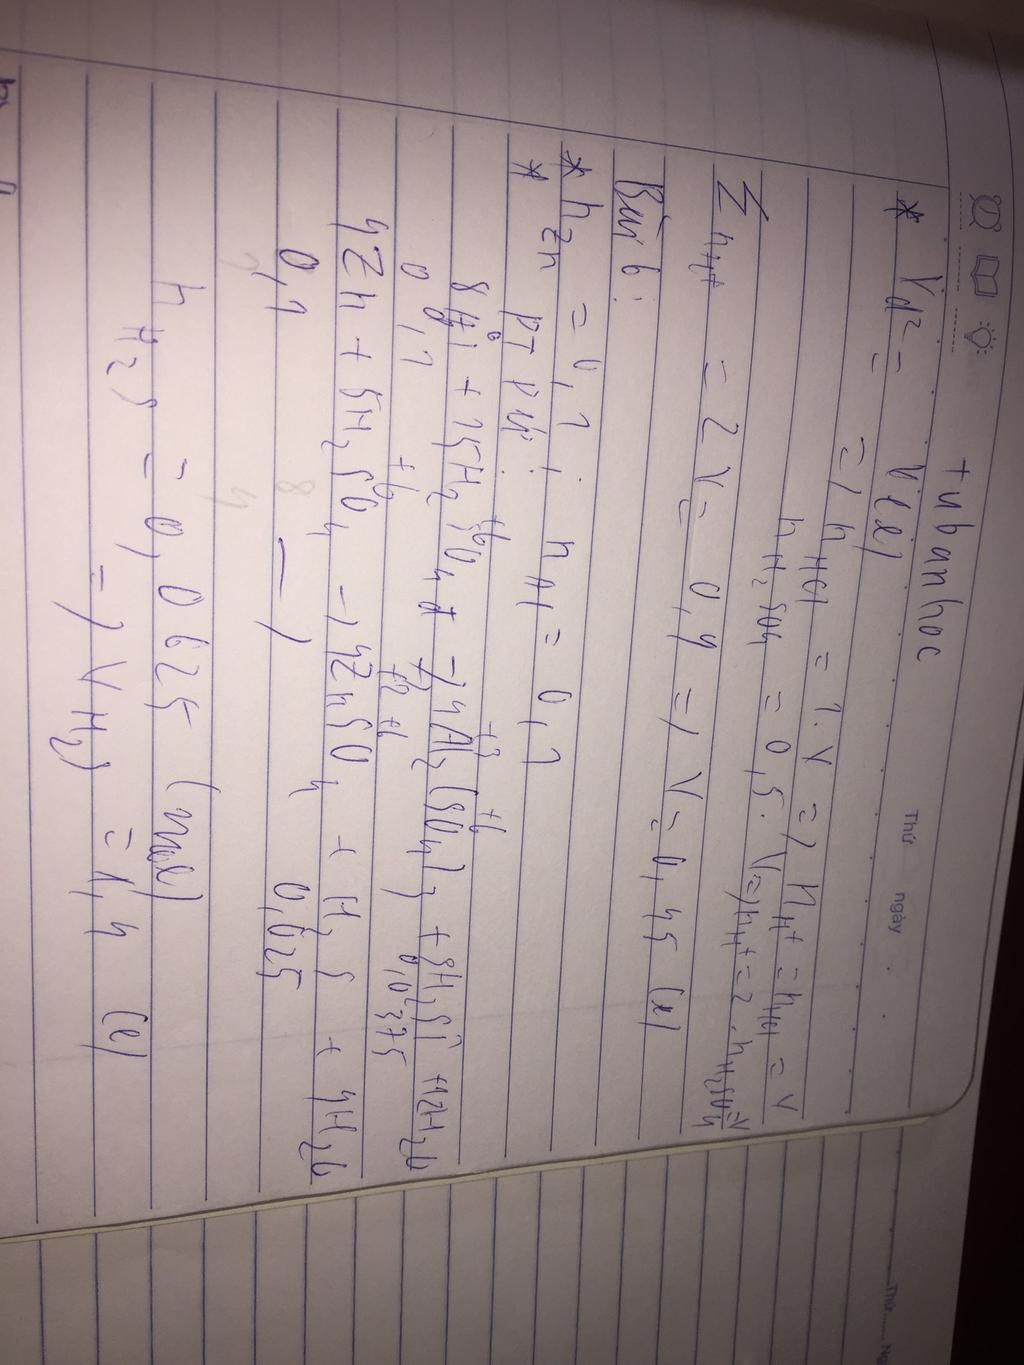 tubanhoc
Thứ ngày
* Vd² = V(l)
=> nHCl = 1.V => nH+ = nHCl = V
nH2SO4 = 0,5.V => nH+ = 2.nH2SO4 = V
∑nH+ = 2V = 0,9 => V = 0,45 (l)
Bài 6:
* nZn = 0,1 ; nAl = 0,1
* PT PƯ:
0 +6 +3 +6
8Al + 15H2SO4đ -> 4Al2(SO4)3 + 3H2S + 12H2O
0,1 0,0375
0 +6 +2 +6 -2
4Zn + 5H2SO4 -> 4ZnSO4 + H2S + 4H2O
0,1 -> 0,025
nH2S = 0,0625 (mol)
=> VH2S = 1,4 (l)
Thứ